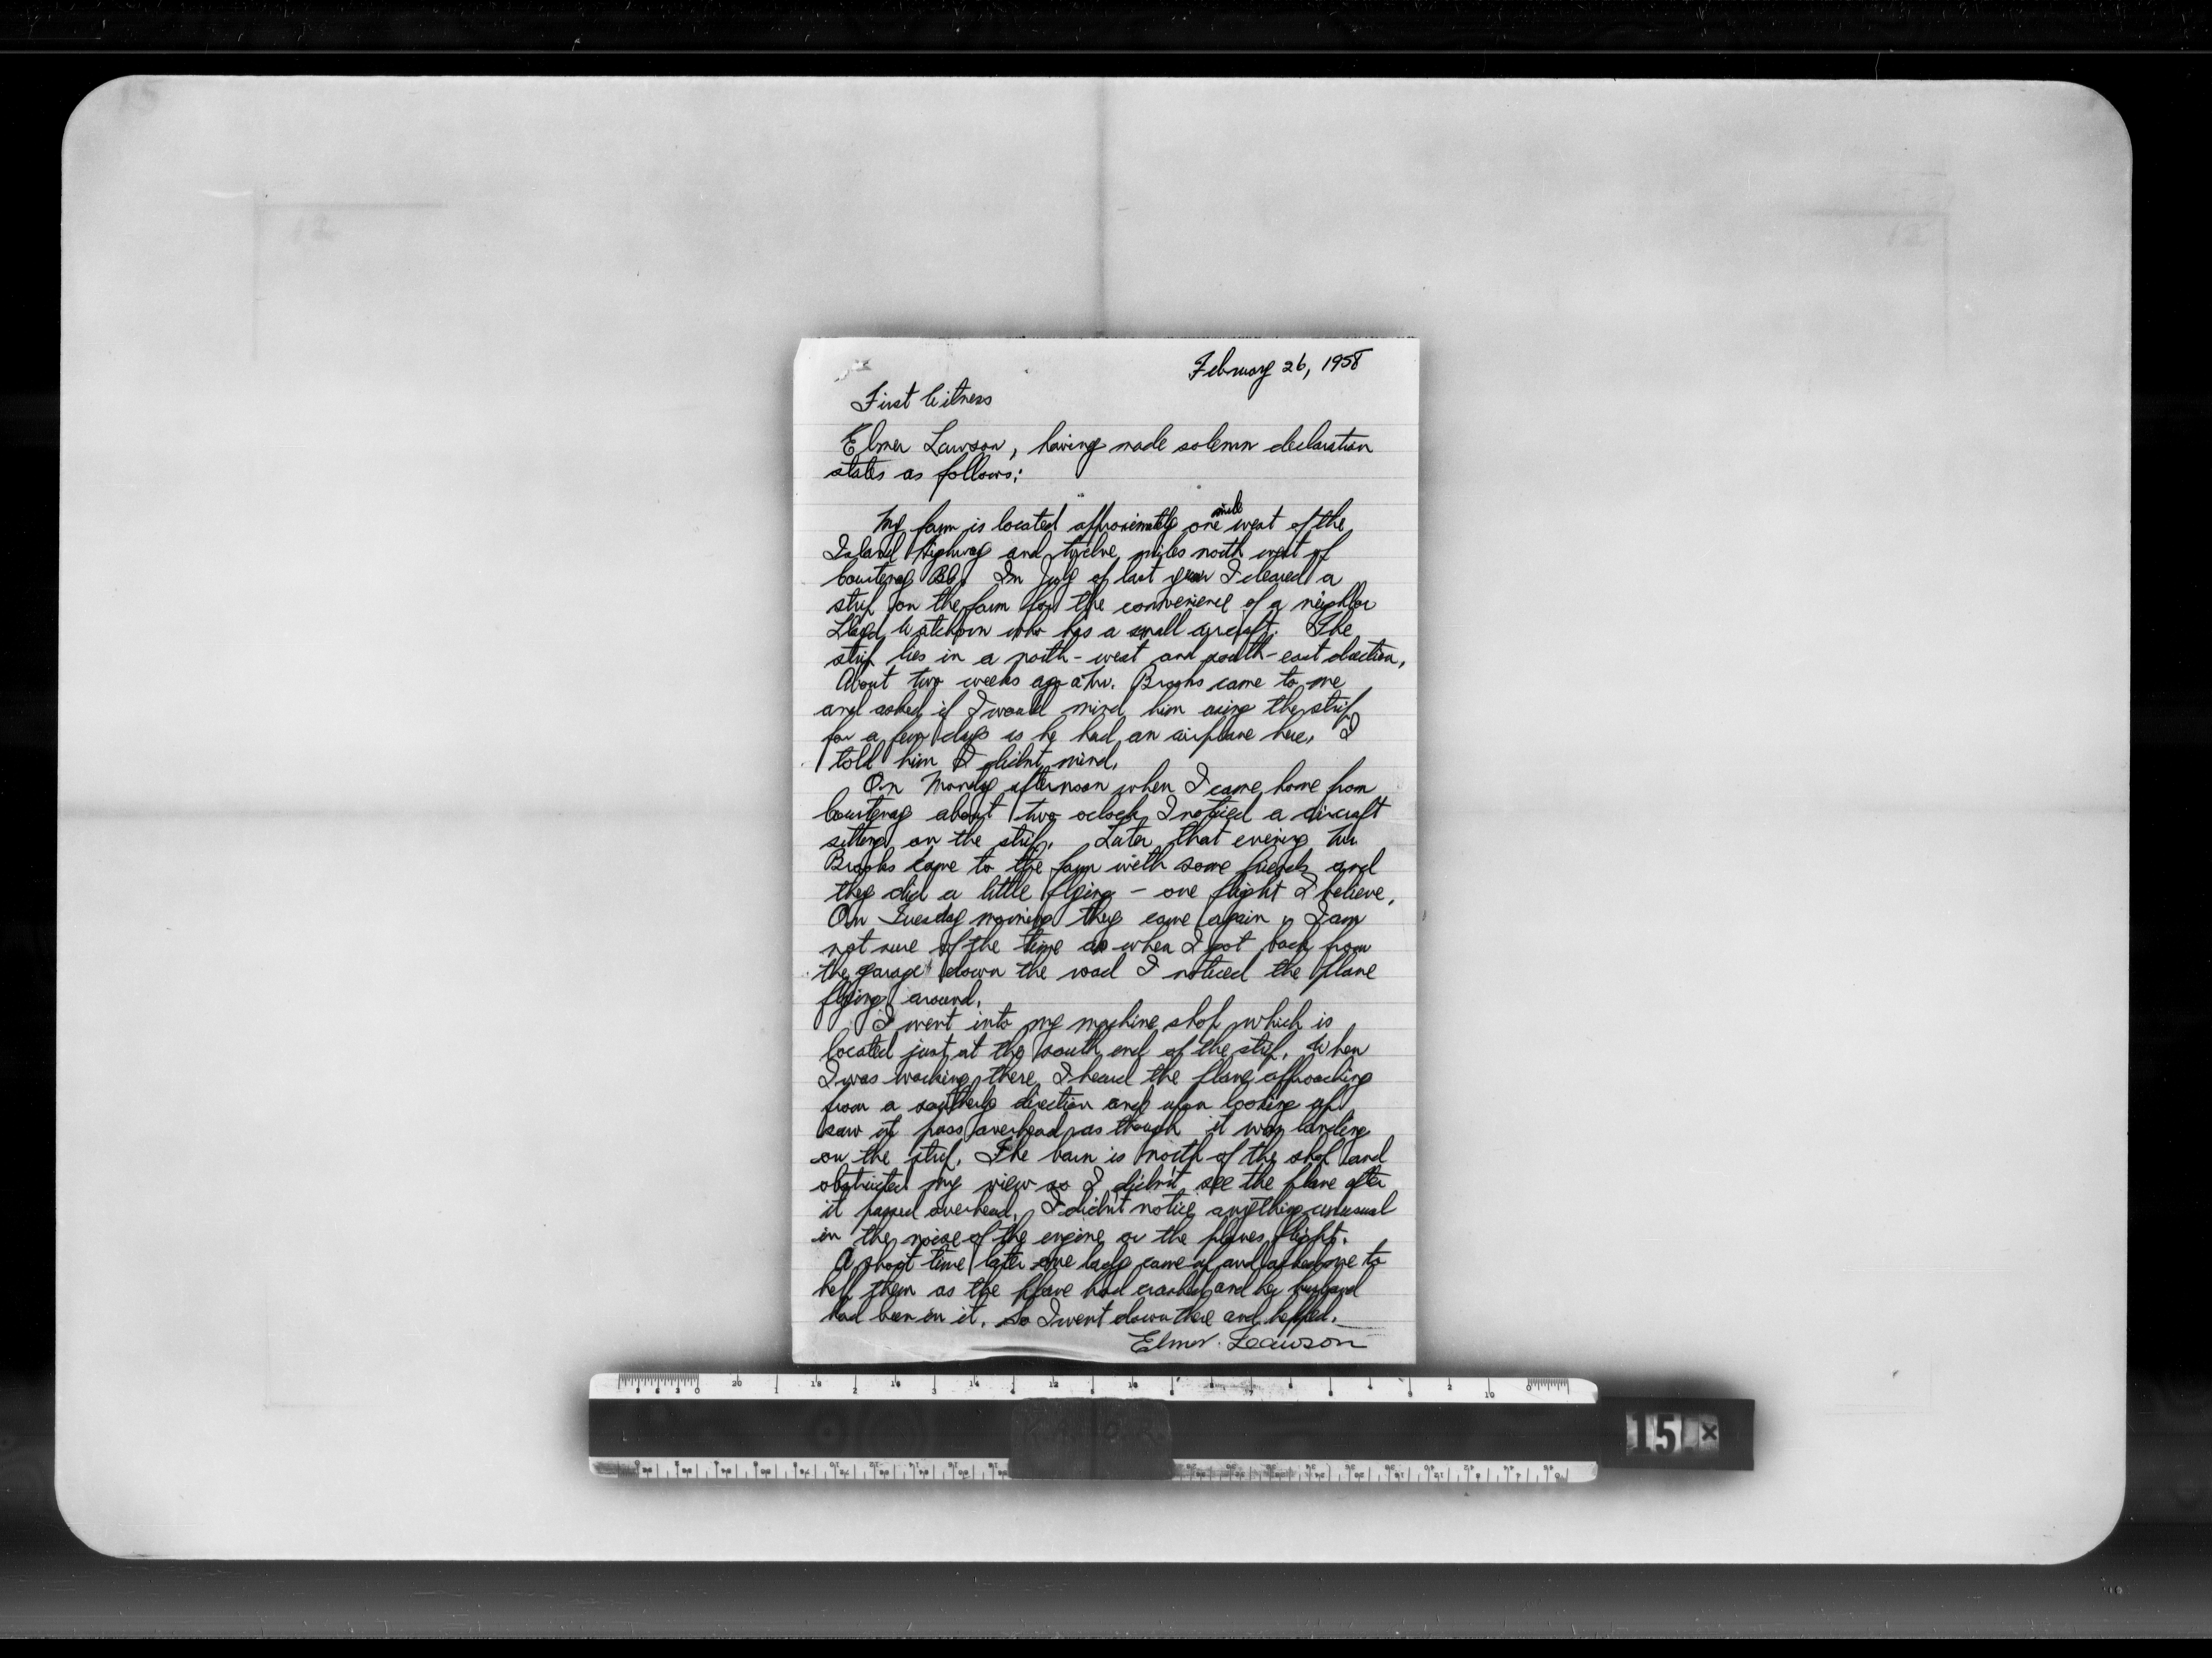 February 26, 1958
First Witness
Elmer Lawson, having made solemn declaration
states as follows:
My farm is located approximately one mile west of the
Island Highway and twelve miles north west of
Courtenay BC. In July of last year I cleared a
strip on the farm for the convenience of a neighbor
Lloyd Watchorn who has a small aircraft. The
strip lies in a north-west and south-east direction.
About two weeks ago a Mr. Brooks came to me
and asked if I would mind him using the strip
for a few days as he had an airplane here. I
told him I didnt mind.
On Monday afternoon when I came home from
Courtenay about two oclock I noticed a aircraft
sitting on the strip. Later that evening Mr.
Brooks came to the farm with some friends and
they did a little flying - one flight I believe.
On Tuesday morning they came again I am
not sure of the time as when I got back from
the garage down the road I noticed the plane
flying around.
I went into my machine shop which is
located just at the south end of the strip. When
I was working there I heard the plane approaching
from a southerly direction and upon looking up
saw it pass overhead as though it was landing
on the strip. The barn is north of the shop and
obstructed my view so I didn't see the plane after
it passed overhead. I didn't notice anything unusual
in the noise of the engine or the planes flight.
A short time later one lady came up and asked me to
help them as the plane had crashed and her husband
had been in it. So I went down there and helped.
Elmer Lawson
15 x